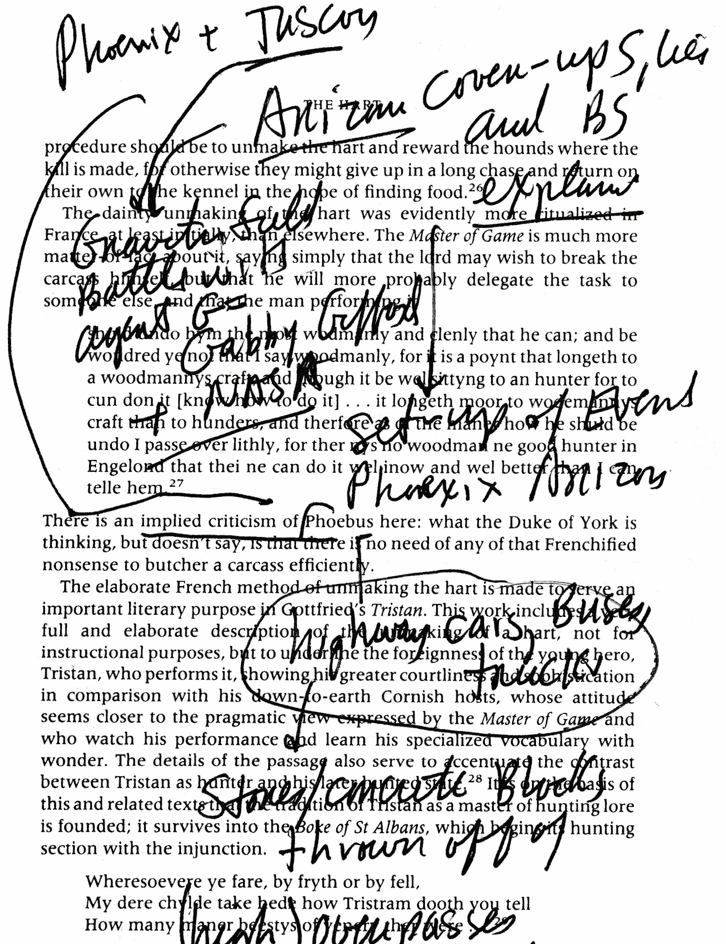 Phoenix + Tuscon
Arizona Cover-ups, lies
and BS
THE HART
procedure should be to unmake the hart and reward the hounds where the
kill is made, for otherwise they might give up in a long chase and return on
their own to the kennel in the hope of finding food.26
explain
The dainty unmaking of the hart was evidently more ritualized in
France, at least initially, than elsewhere. The Master of Game is much more
matter-of-fact about it, saying simply that the lord may wish to break the
carcass himself, but that he will more probably delegate the task to
someone else, and that the man performing it
battle
agent
Gabby Gifford
+ NASA
undo hym the most wodmanly and clenly that he can; and be
wondred ye not that I say woodmanly, for it is a poynt that longeth to
a woodmannys craft and though it be wel sittyng to an hunter for to
cun don it [know how to do it] . . . it longeth moor to wodemannys
craft than to hunders, and therfore as of the maner how he shuld be
undo I passe over lithly, for ther nys no woodman ne good hunter in
Engelond that thei ne can do it wel inow and wel better than I can
telle hem.27
set-up of Evens
Phoexix Arizona
There is an implied criticism of Phoebus here: what the Duke of York is
thinking, but doesn't say, is that there is no need of any of that Frenchified
nonsense to butcher a carcass efficiently.
The elaborate French method of unmaking the hart is made to serve an
important literary purpose in Gottfried's Tristan. This work includes a very
full and elaborate description of the unmaking of a hart, not for
instructional purposes, but to underline the foreignness of the young hero,
Tristan, who performs it, showing his greater courtliness and sophistication
in comparison with his down-to-earth Cornish hosts, whose attitude
seems closer to the pragmatic view expressed by the Master of Game and
who watch his performance and learn his specialized vocabulary with
wonder. The details of the passage also serve to accentuate the contrast
between Tristan as hunter and his later hunted state.28 It is on the basis of
this and related texts that the tradition of Tristan as a master of hunting lore
is founded; it survives into the Boke of St Albans, which begins its hunting
section with the injunction.
highway cars, Buses,
trucks
Stones/concrete Blocks
thrown off of
Wheresoevere ye fare, by fryth or by fell,
My dere chylde take hede how Tristram dooth you tell
How many maner beestys of venery ther were
(high) overpasses